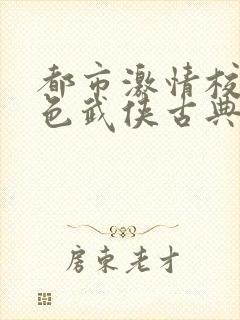 都市激情校
色武侠古典
房东老才